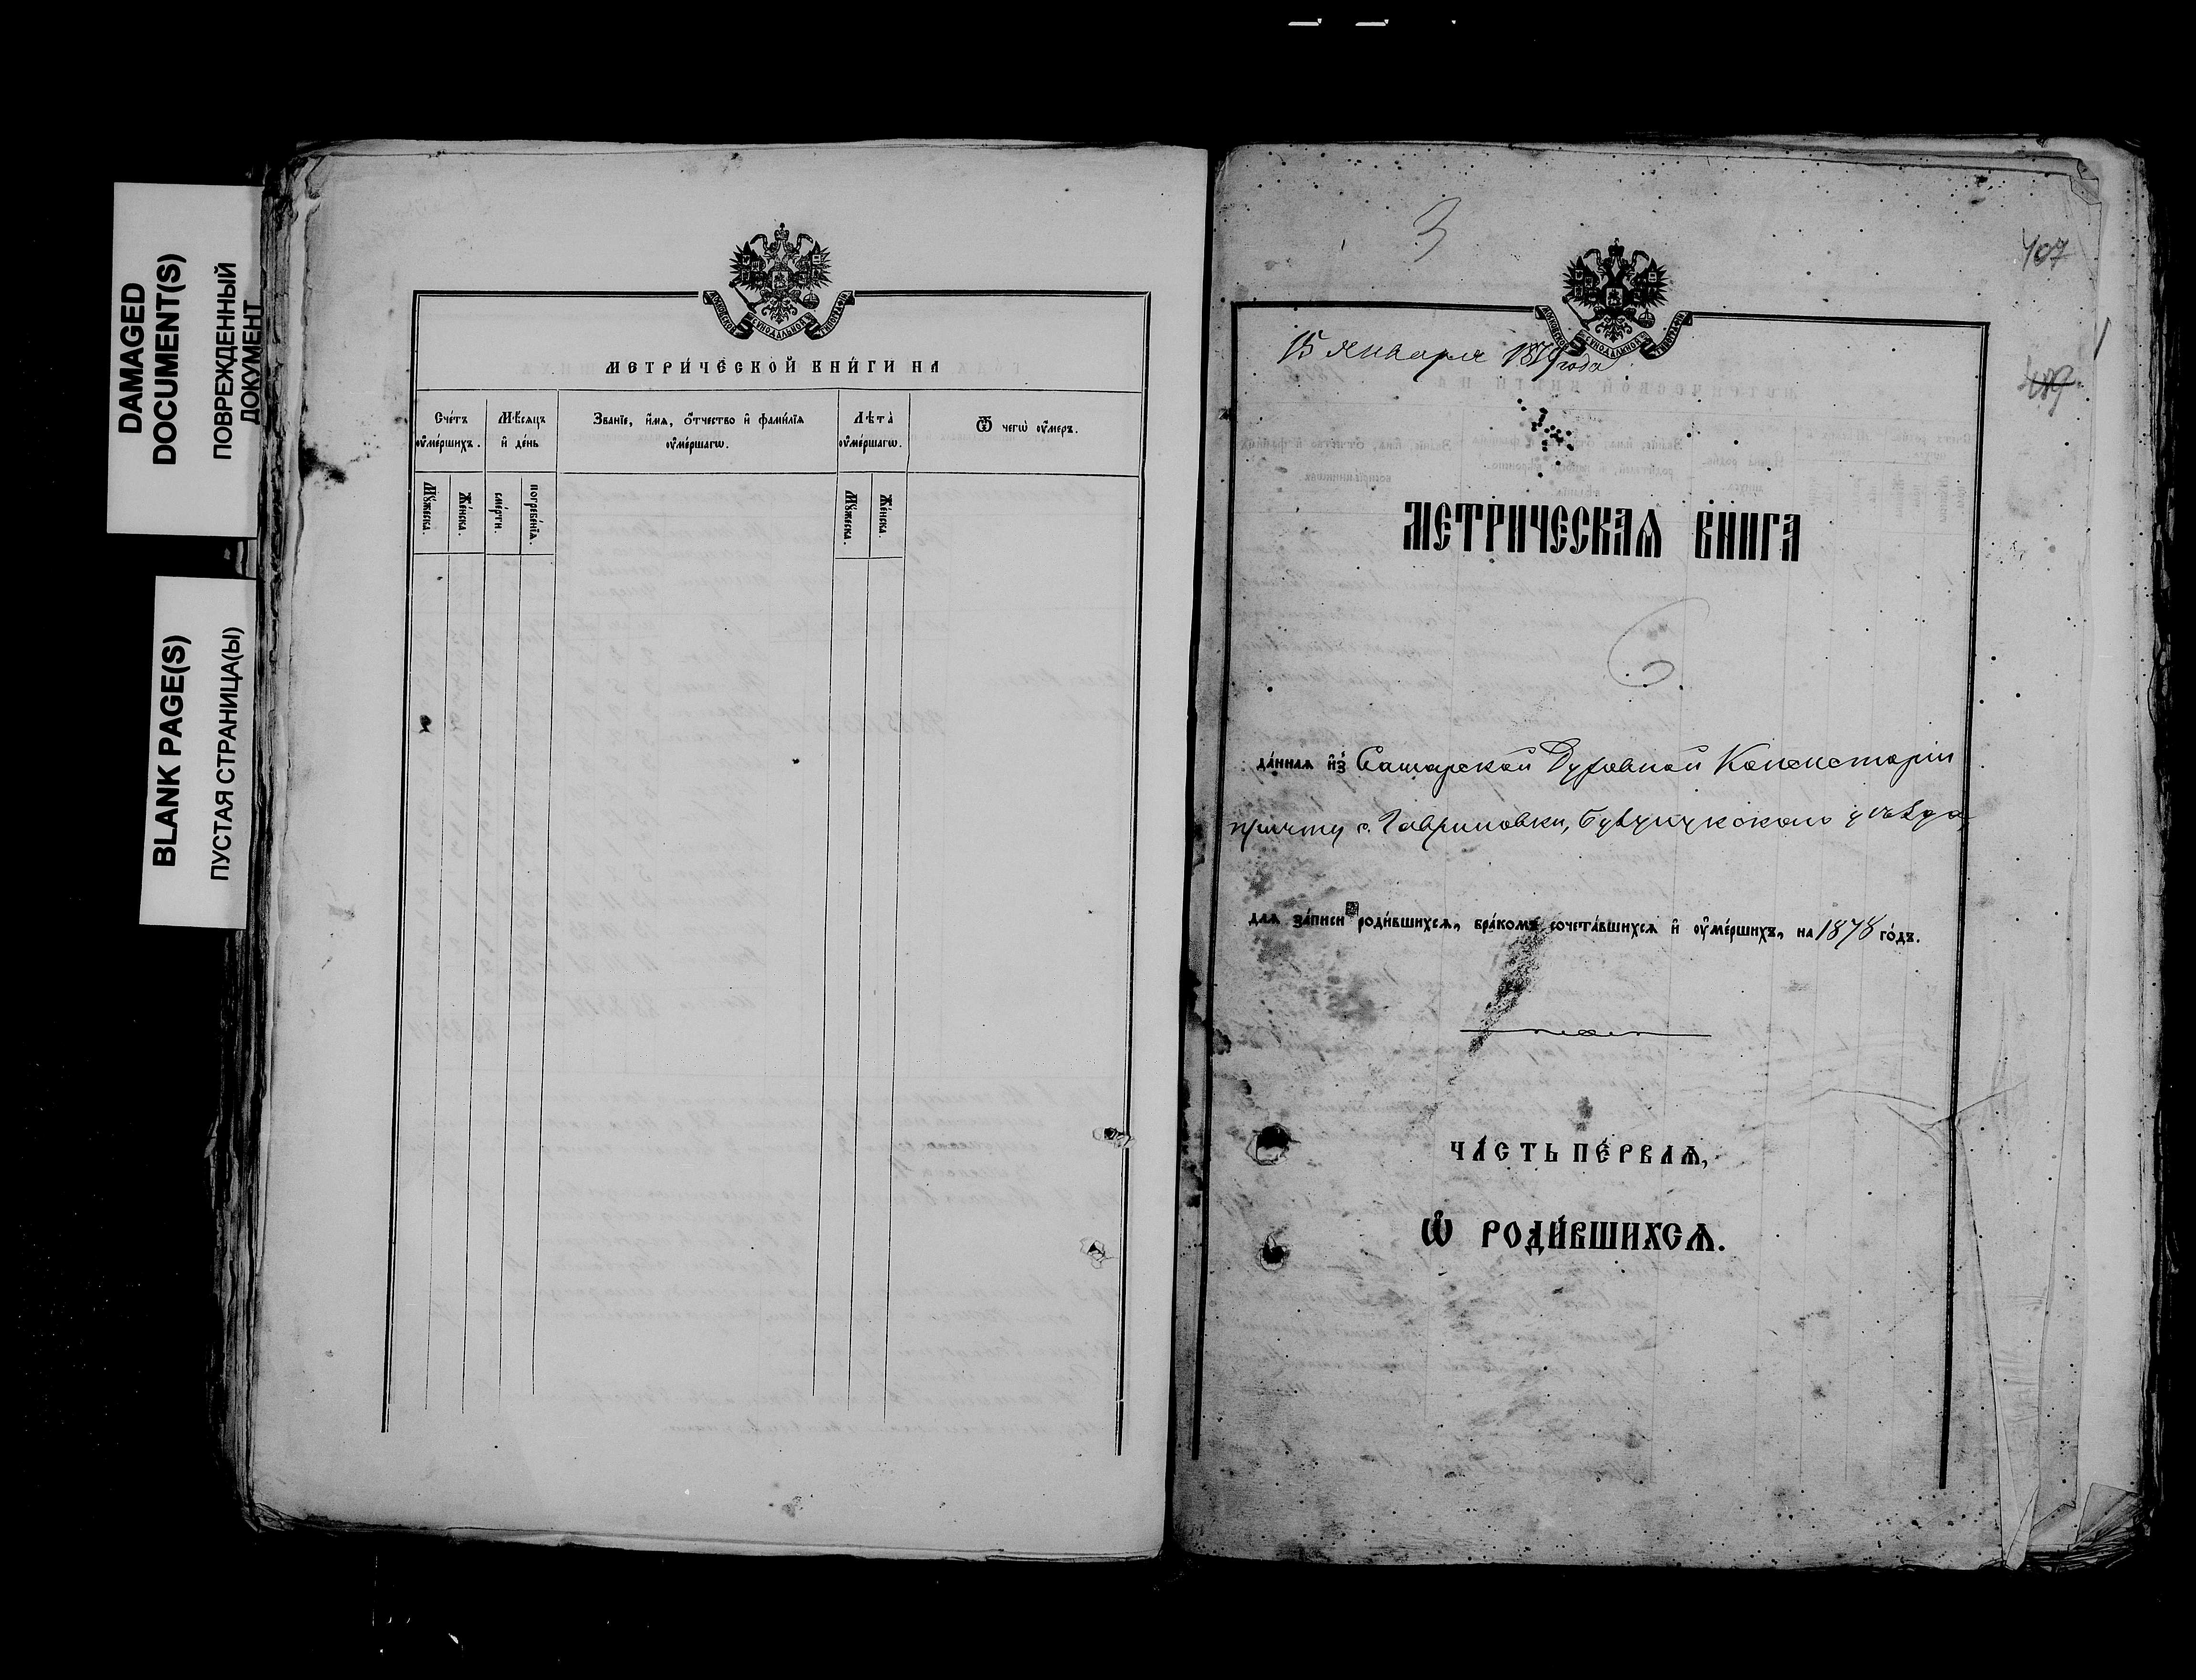 DAMAGED
DOCUMENT(S)
ПОВРЕЖДЕННЫЙ
ДОКУМЕНТ
BLANK PAGE(S)
ПУСТАЯ СТРАНИЦА(Ы)
МЕТРИ́ЧЕСКОЙ КНИ́ГИ НА
Сче́тъ ᲂу҆ме́ршихъ.
Мѣ́сяцъ и҆ де́нь
Зва́нїе, и҆́мѧ, ѻ҆́тчество и҆ фами́лїѧ ᲂу҆ме́ршагѡ.
Лѣ́та ᲂу҆ме́ршагѡ.
Ѿ чегѡ̀ ᲂу҆́меръ.
Мꙋ́жеска.
Же́нска.
сме́рти.
погребе́нїѧ.
Мꙋ́жеска.
Же́нска.
3
407
15 января 1879 года
МЕТРИЧЕСКАѦ КНИГА
6
да́ннаѧ и҆з̾ Самарской Духовной Консисторіи
причту с. Гавриловки, Бузулукскаго уѣзда,
длѧ за́писи роди́вшихсѧ, бра́комъ сочета́вшихсѧ и҆ ᲂу҆ме́ршихъ, на 1878 го́дъ.
ЧА́СТЬ ПЕ́РВАѦ,
Ѡ҆ РОДИ́ВШИХСѦ.